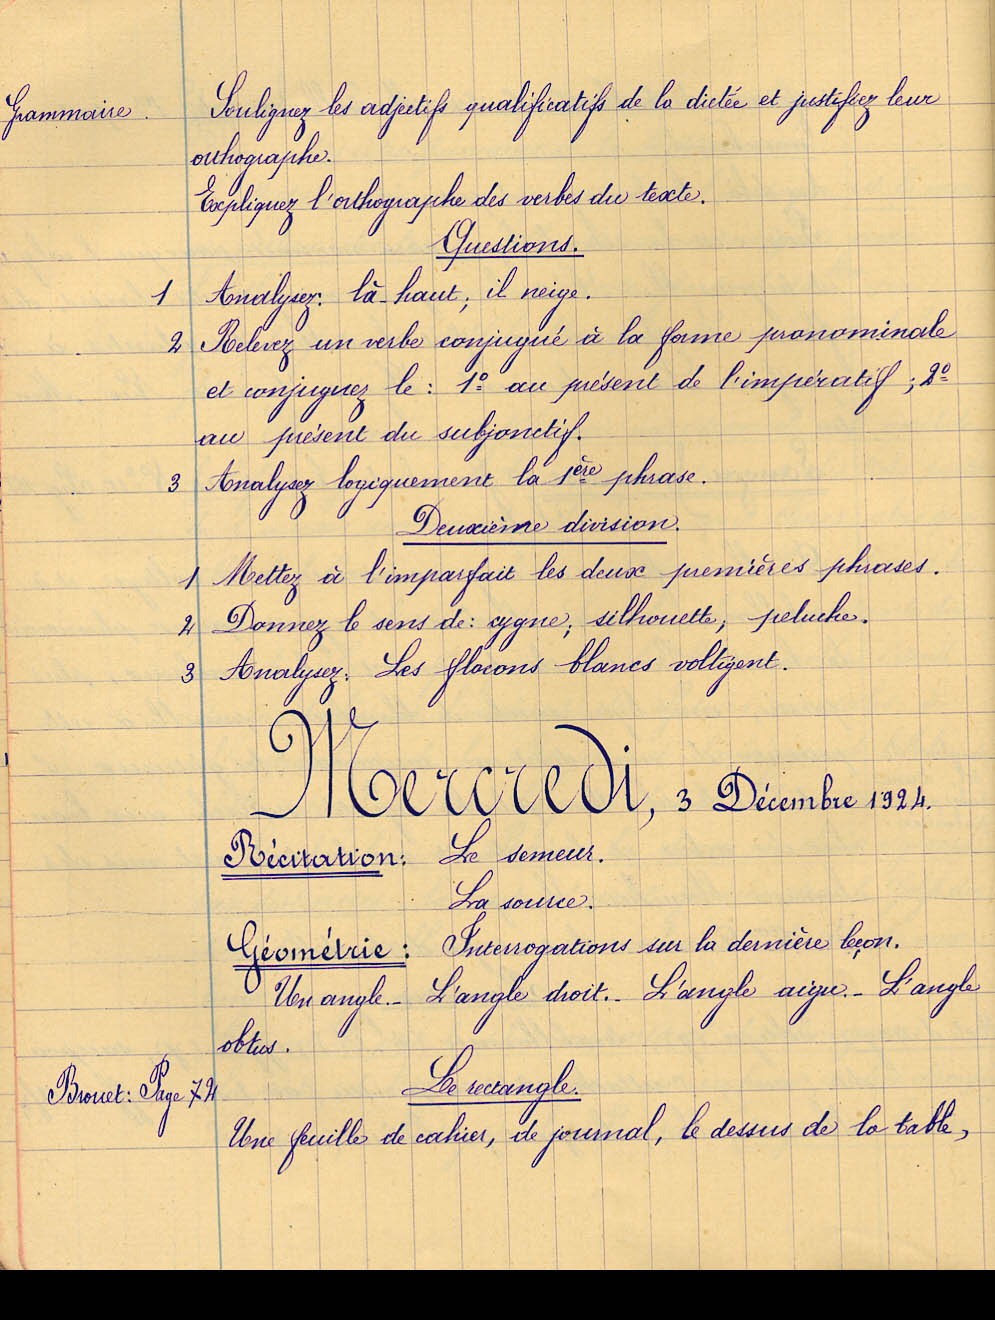 Grammaire. Soulignez les adjectifs qualificatifs de la dictée et justifiez leur
orthographe.
Expliquez l'orthographe des verbes du texte.
Questions.
1 Analysez: là-haut, il neige.
2 Relevez un verbe conjugué à la forme pronominale
et conjuguez le : 1º au présent de l'impératif ; 2º
au présent du subjonctif.
3 Analysez logiquement la 1ère phrase.
Deuxième division.
1 Mettez à l'imparfait les deux premières phrases.
2 Donnez le sens de: cygne; silhouette; peluche.
3 Analysez: Les flocons blancs voltigent.
Mercredi, 3 Décembre 1924.
Récitation: Le semeur.
La source.
Géométrie: Interrogations sur la dernière leçon.
Un angle.- L'angle droit.- L'angle aigu.- L'angle
obtus.
Brouet: Page 74 Le rectangle.
Une feuille de cahier, de journal, le dessus de la table,